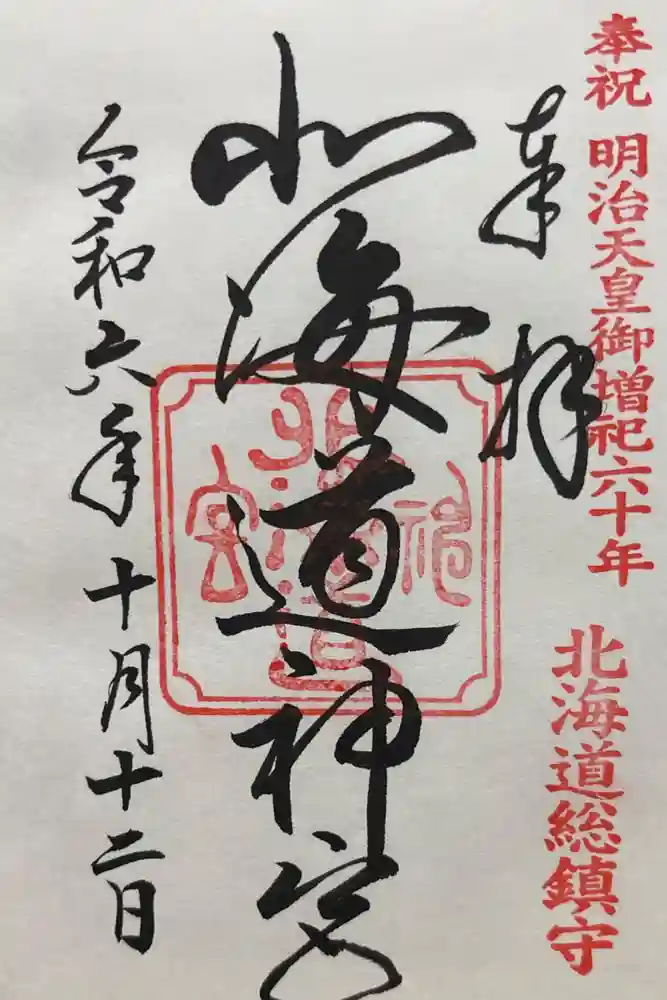 奉祝 明治天皇御増祀六十年
北海道総鎮守
奉拝
北海道神宮
北海道神宮
令和六年十月十二日